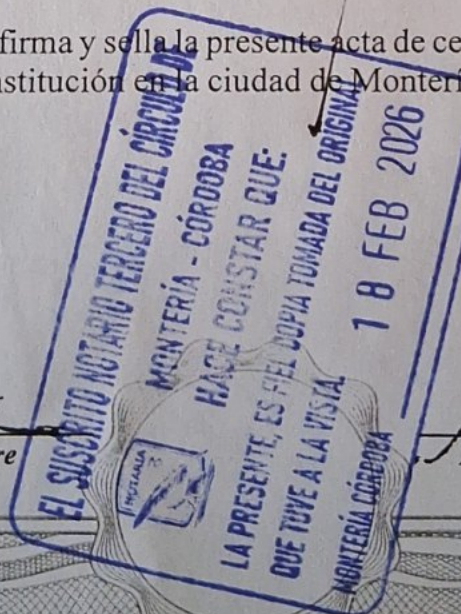 firma y sella la presente acta de ce
stitución en la ciudad de Monterí
EL SUSCRITO NOTARIO TERCERO DEL CÍRCULO DE
MONTERÍA - CÓRDOBA
HACE CONSTAR QUE:
LA PRESENTE, ES FIEL COPIA TOMADA DEL ORIGINAL
QUE TUVE A LA VISTA.
18 FEB 2026
MONTERÍA CÓRDOBA
re